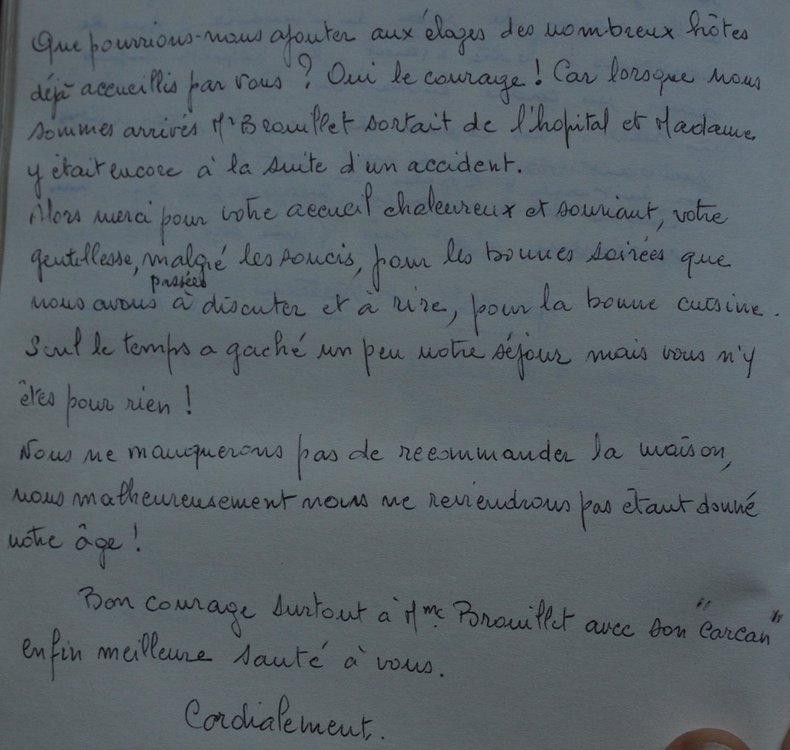 Que pourrions-nous ajouter aux éloges des nombreux hôtes
déjà accueillis par vous ? Oui le courage ! Car lorsque nous
sommes arrivés Mr Brouillet sortait de l'hopital et Madame
y était encore à la suite d'un accident.
Alors merci pour votre accueil chaleureux et souriant, votre
gentillesse, malgré les soucis, pour les bonnes soirées que
passées
nous avons à discuter et à rire, pour la bonne cuisine.
Seul le temps a gaché un peu notre séjour mais vous n'y
êtes pour rien !
Nous ne manquerons pas de recommander la maison,
nous malheureusement nous ne reviendrons pas étant donné
notre âge !
Bon courage surtout à Mme Brouillet avec son "Carcan"
enfin meilleure santé à vous.
Cordialement.